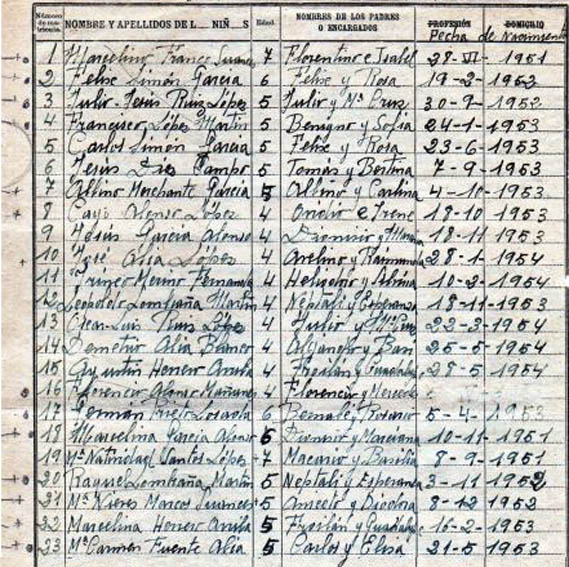 Número de matrícula. NOMBRE Y APELLIDOS DE L__ NIÑ_S Edad. NOMBRES DE LOS PADRES O ENCARGADOS PROFESIÓN DOMICILIO
Fecha de Nacimiento
1 Marcelino Franco Juanes 7 Florentino e Isabel 28-VI-1951
2 Felix Simón García 6 Felix y Rosa 19-2-1953
3 Julio-Jesús Ruiz López 5 Julio y Mª Cruz 30-9-1952
4 Francisco López Martín 5 Benigno y Sofía 24-1-1953
5 Carlos Simón García 5 Felix y Rosa 23-6-1953
6 Jesús Díez Campo 5 Tomás y Bertina 7-9-1953
7 Albino Merchante García 5 Albino y Carlina 4-10-1953
8 Cayo Alonso López 4 e Irene 18-10 1953
9 Jesús García Alonso 4 Dionisio y 18-11 1953
10 José Alia López 4 Avelino y 28-1-1954
11 Merino 4 Heliodoro y 10-2-1954
12 Leopoldo Lombraña Martín 4 Neptalí y Esperanza 18-11-1953
13 Oscar-Luis Ruiz López 4 Julio y Mª Cruz 22-3-1954
14 Demetrio Alia Blanco 4 Alejandro y 25-5-1954
15 Agustín Herrero 4 Froilán y 28-5-1954
16 Florencio Alonso 4 Florencio y
17 Germán 6 y Rosario 5-4-1953
18 Marcelina García Alonso 6 Dionisio y Marciana 10-11-1951
19 Mª Natividad Santos López 7 Macario y Basilia 8-9-1951
20 Raquel Lombraña Martín 5 Neptalí y Esperanza 3-11-1952
21 Mª Nieves Marcos Juanes 5 Aniceto y Diodora 8-12 1952
22 Marcelina Herrero 5 Froilán y 16-2-1953
23 Mª Carmen Fuente Alia 5 Carlos y Elisa 21-5 1953